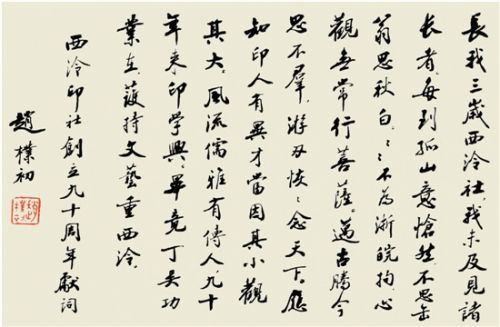 長我三歲西泠社我未及見諸
長者每到孤山意愴然不思缶
翁思秋白〻〻不為浙皖拘心
觀無常行菩薩邁古騰今
思不羣游刃恢〻念天下應
知印人有異才當因其小觀
其大風流儒雅有傳人九十
年來印学興畢竟丁吳功
業在護持文藝重西泠
西泠印社創立九十周年獻詞
趙樸初